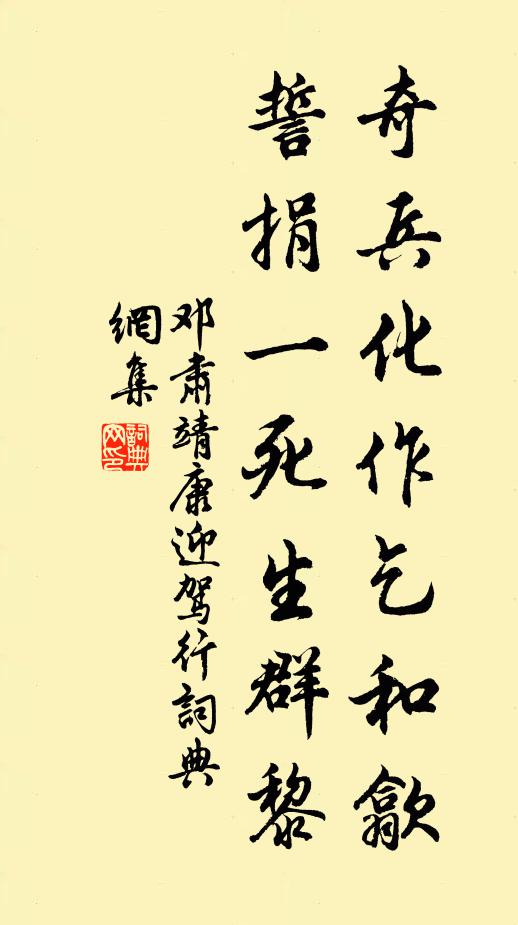 奇兵化作乞和歙
誓捐一死生群黎
邓肃靖康迎驾行詞典
網集
詞典網印